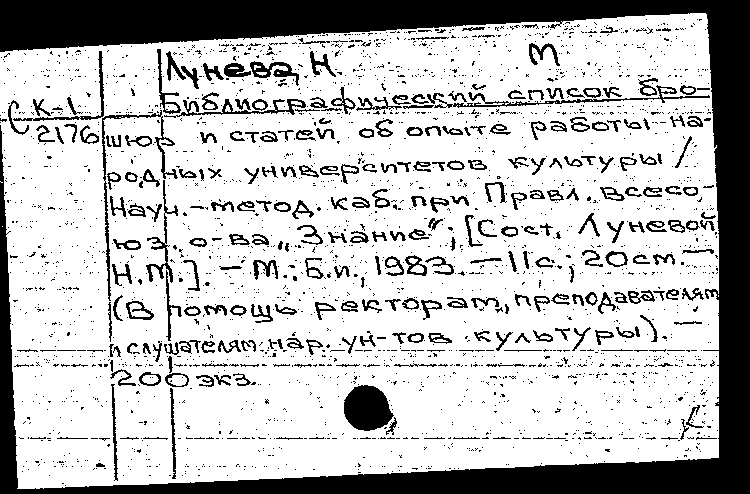 Лунева, Н. М
С К-1 Библиографический список бро-
2176 шюр и статей об опыте работы на-
родных университетов культуры /
Науч.-метод. каб. при Правл. Всесо-
юз. о-ва „Знание“; [Сост. Луневой
Н.М.]. – М.: Б.и., 1983. – 11с.; 20см. –
(В помощь ректорам, преподавателям
и слушателям нар. ун-тов культуры). –
200 экз.